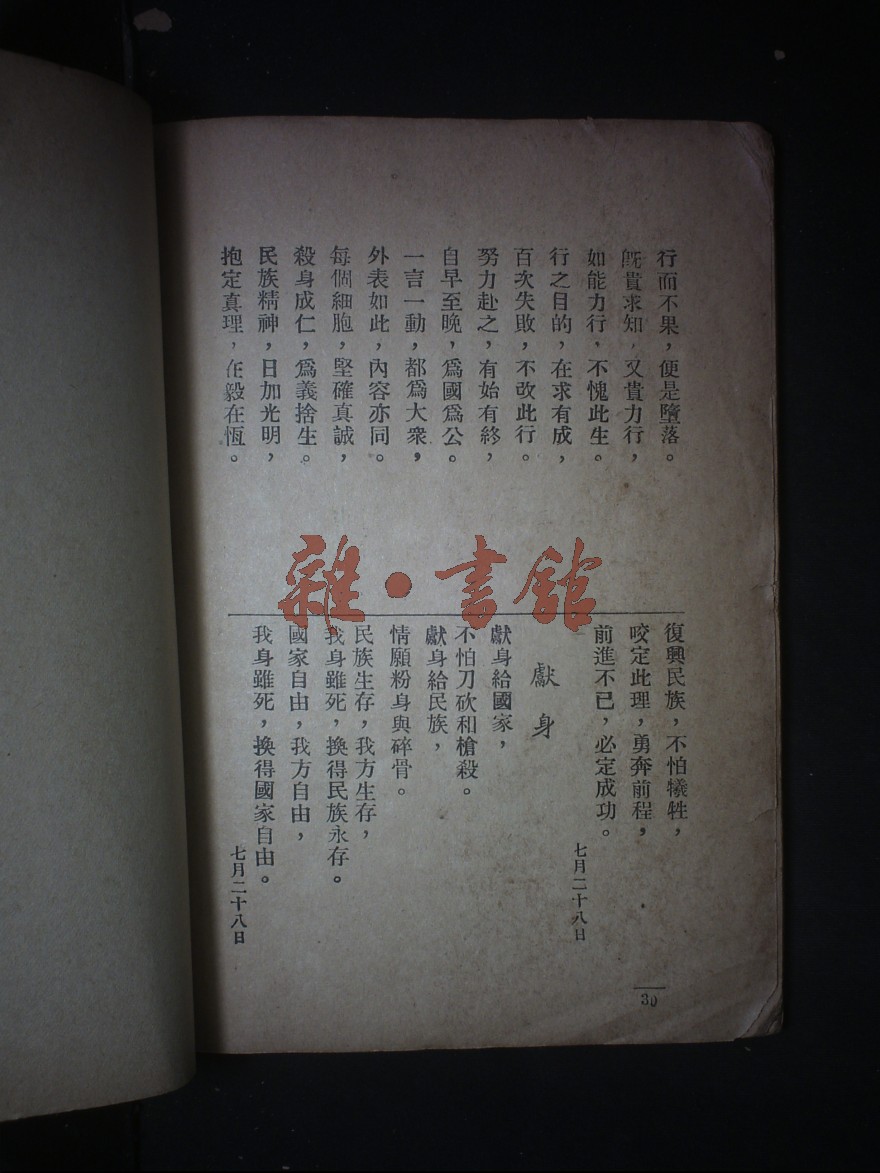 行而不果，便是墮落。
旣貴求知，又貴力行，
如能力行，不愧此生。
行之目的，在求有成，
百次失敗，不改此行。
努力赴之，有始有終，
自早至晚，爲國爲公。
一言一動，都爲大衆，
外表如此，內容亦同。
每個細胞，堅確真誠，
殺身成仁，爲義捨生。
民族精神，日加光明，
抱定真理，在毅在恆。
復興民族，不怕犧牲，
咬定此理，勇奔前程，
前進不已，必定成功。
七月二十八日
獻身
獻身給國家，
不怕刀砍和槍殺。
獻身給民族，
情願粉身與碎骨。
民族生存，我方生存，
我身雖死，換得民族永存。
國家自由，我方自由，
我身雖死，換得國家自由。
七月二十八日
30
雜·書館